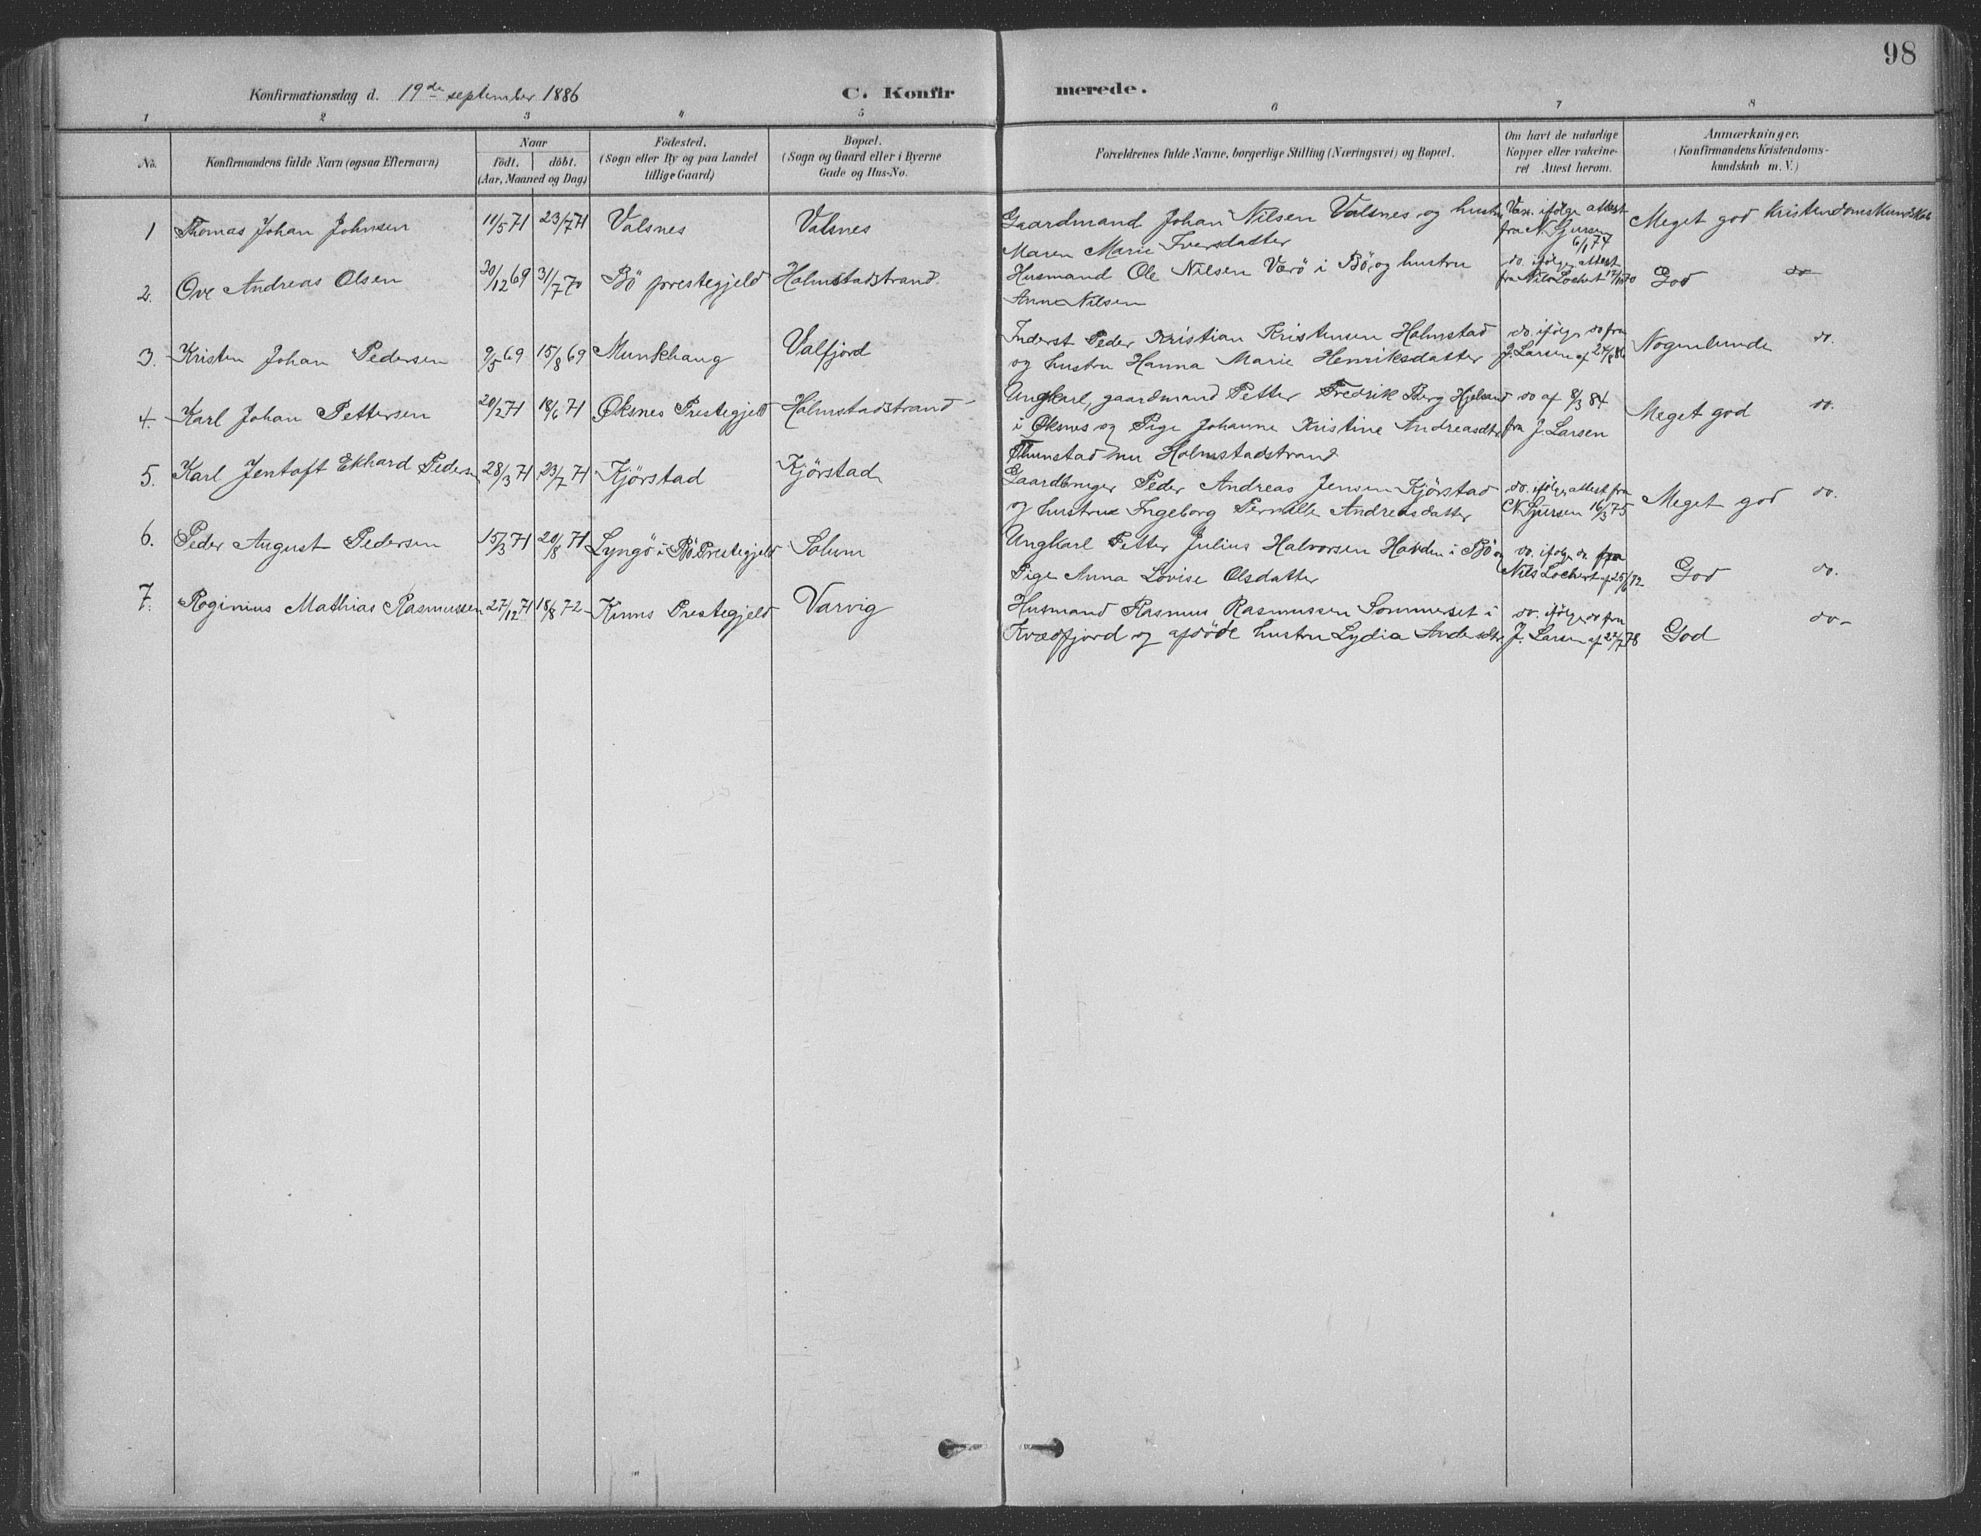 98
Konfirmationsdag d. 19de september 1886 C. Konfirmerede.
1 2 3 4 5 6 7 8
No. Konfirmandens fulde Navn (ogsaa Efternavn) Naar födt. döbt. (Aar, Maaned og Dag) Födested. (Sogn eller By og paa Landet tillige Gaard) Bopæl. (Sogn og Gaard eller i Byerne Gade og Hus-No. Forældrenes fulde Navne, borgerlige Stilling (Næringsvei) og Bopæl. Om havt de naturlige Kopper eller vakcineret Attest herom. Anmærkninger. (Konfirmandens Kristendomskundskab m. V.)
1 Thomas Johan Johnsen 11/5 71 23/7 71 Valsnes Valsnes Gaardmand Johan Nilsen Valsnes og hustru Vax. ifölge attest Meget god Kristendomskundskab
Maren Marie Iversdatter fra N. Gjursen 6/1 74
2. Ove Andreas Olsen 30/12 69 31/7 70 Bö prestegjeld Holmstadstrand. Husmand Ole Nilsen Værö i Bö og hustru do. ifölge attest God do
Anna Nilsen fra Nils Lockert
3. Kristen Johan Pedersen 9/5 69 15/8 69 Munkhaug Valfjord Inderst Peder Kristian Kristensen Holmstad do. ifölge do fra Nogenlunde do.
og hustru Hanna Marie Henriksdatter J. Larsen af 24/8 86
4. Karl Johan Pettersen 20/2 71 18/6 71 Øksnes Prestegjeld Holmstadstrand Ungkarl, gaardmand Petter Fredrik Berg do af 8/3 84 Meget god do.
i Øksnes og Pige Johanne Kristine Andreasdtr fra J. Larsen
Thunstad nu Holmstadstrand
5. Karl Jentoft Ekhard Peders 28/3 71 23/7 71 Kjörstad Kjörstad Gaardbruger Peder Andreas Jensen Kjörstad do. ifölge attest fra Meget god do.
og hustru Ingeborg Pernille Andreasdatter N Gjursen 16/3 75
6. Peder August Pedersen 15/3 71 20/8 71 Lyngö i Bö Prestegjeld Solum Ungkarl Petter Julius Halvorsen Hovden i Bö og do. ifölge do. fra God do.
Pige Anna Lovise Olsdatter Nils Lockert af 25/6 72
7. Roginius Mathias Rasmussen 27/12 71 18/8 72 Kinns Prestegjeld Varvig Husmand Rasmus Rasmussen Sommerset i do. ifölge do fra God do
Kvædfjord og afdöde hustru Lydia Andersdtr J. Larsen af 22/7 78